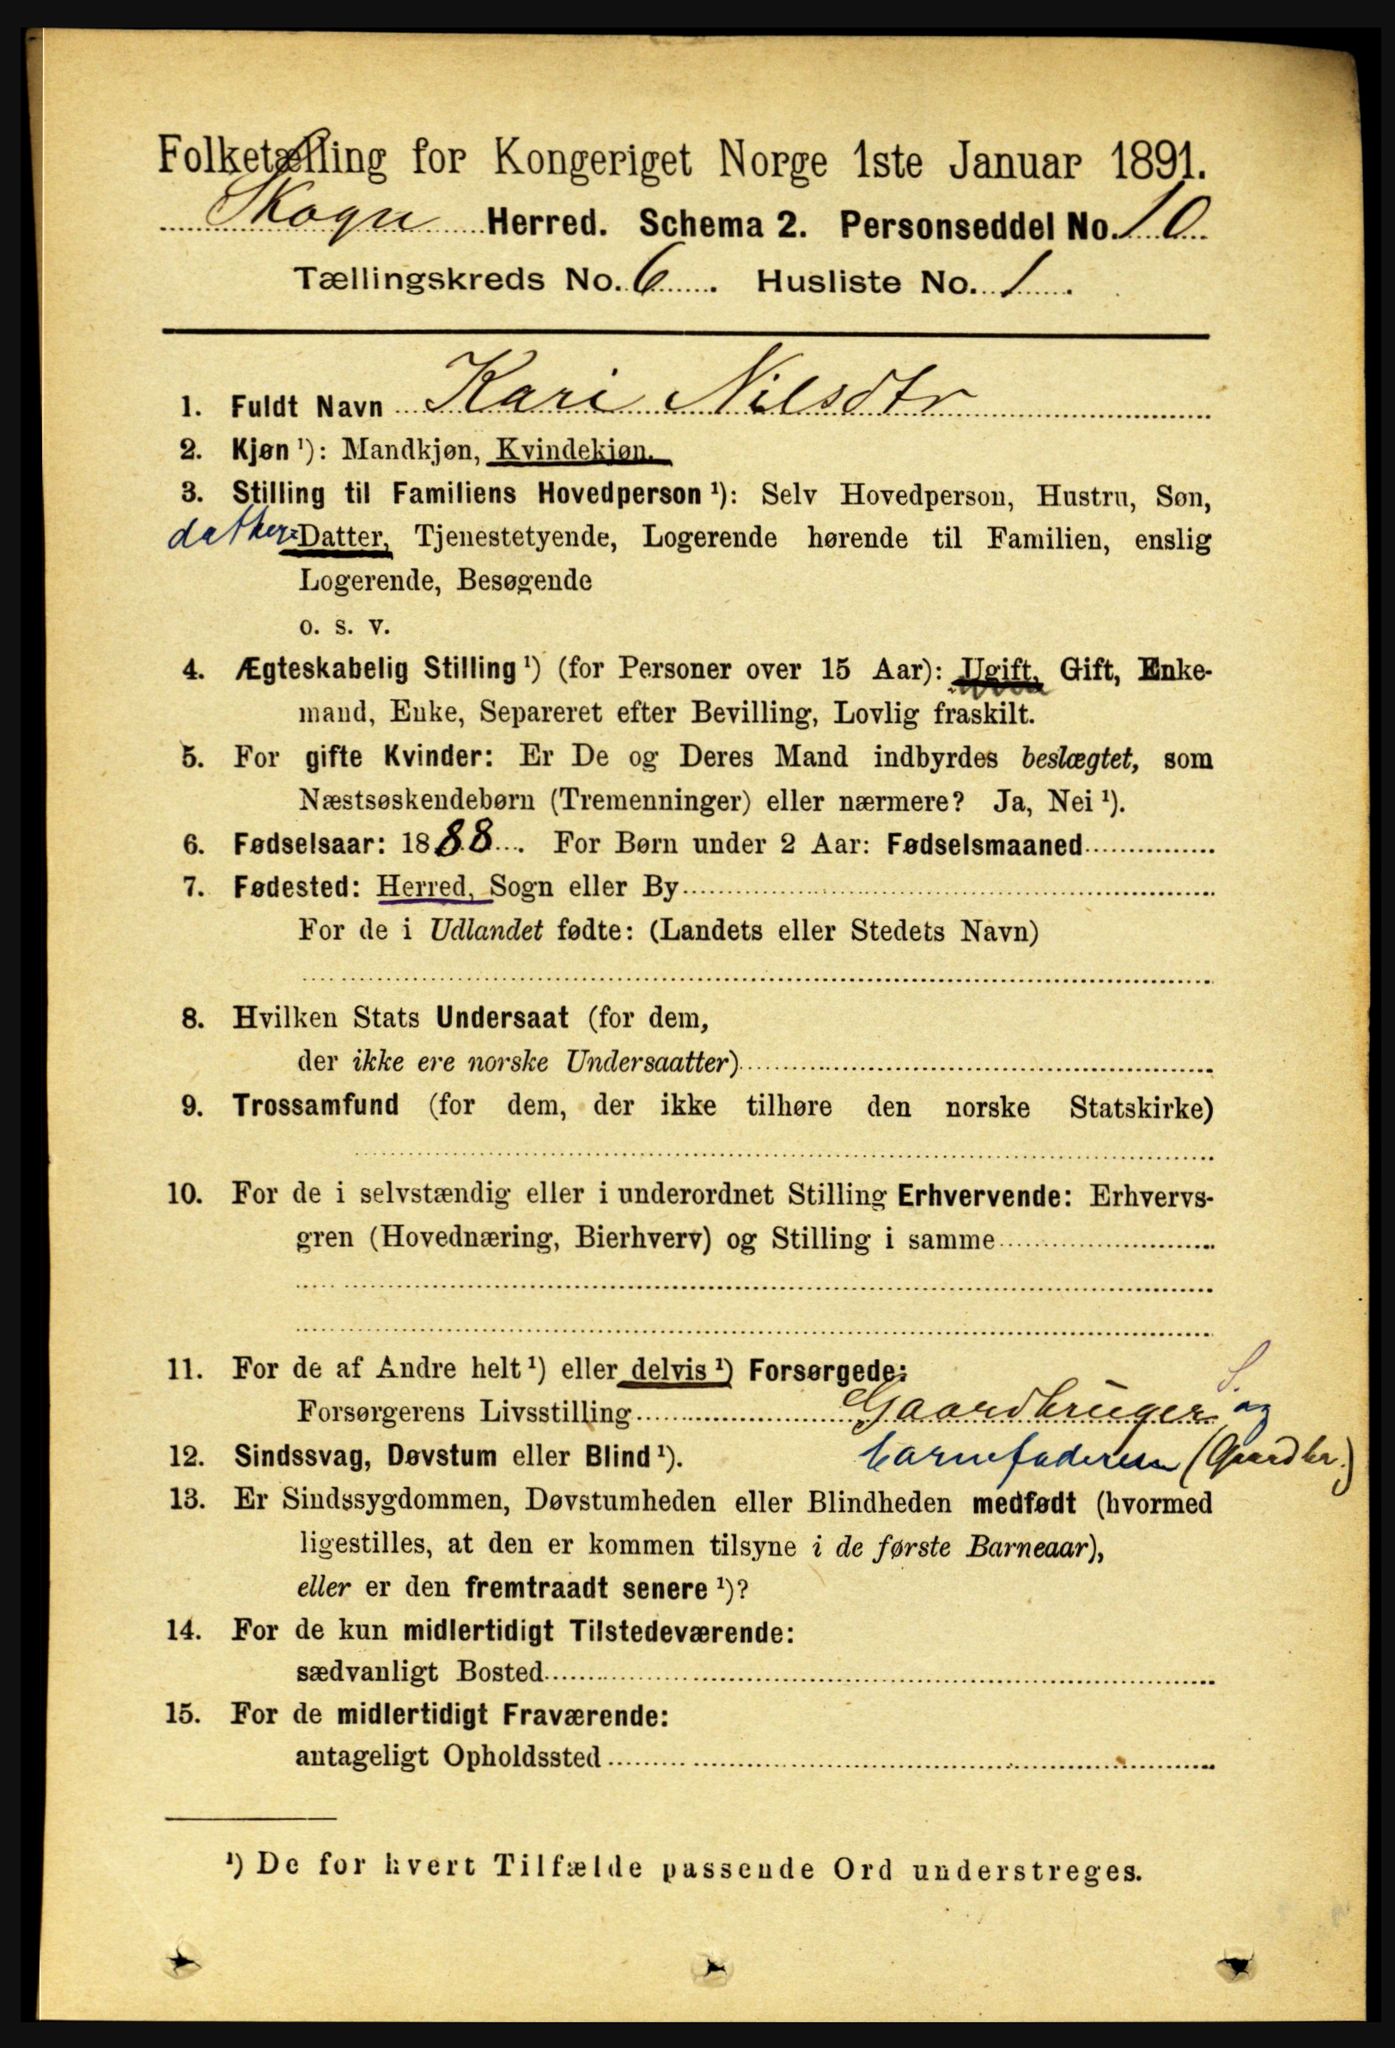 Folketælling for Kongeriget Norge 1ste Januar 1891.
Skogn Herred. Schema 2. Personseddel No. 10
Tællingskreds No. 6. Husliste No. 1.
1. Fuldt Navn Kari Nilsdtr
2. Kjøn¹): Mandkjøn, Kvindekjøn.
3. Stilling til Familiens Hovedperson¹): Selv Hovedperson, Hustru, Søn,
datters Datter, Tjenestetyende, Logerende hørende til Familien, enslig
Logerende, Besøgende
o. s. v.
4. Ægteskabelig Stilling¹) (for Personer over 15 Aar): Ugift, Gift, Enke-
mand, Enke, Separeret efter Bevilling, Lovlig fraskilt.
5. For gifte Kvinder: Er De og Deres Mand indbyrdes beslægtet, som
Næstsøskendebørn (Tremenninger) eller nærmere? Ja, Nei¹).
6. Fødselsaar: 1888. For Børn under 2 Aar: Fødselsmaaned
7. Fødested: Herred, Sogn eller By
For de i Udlandet fødte: (Landets eller Stedets Navn)
8. Hvilken Stats Undersaat (for dem,
der ikke ere norske Undersaatter)
9. Trossamfund (for dem, der ikke tilhøre den norske Statskirke)
10. For de i selvstændig eller i underordnet Stilling Erhvervende: Erhvervs-
gren (Hovednæring, Bierhverv) og Stilling i samme
11. For de af Andre helt¹) eller delvis¹) Forsørgede:
S.
Forsørgerens Livsstilling Gaardbruger og
12. Sindssvag, Døvstum eller Blind¹). barnefaderen (Gaardbr.)
13. Er Sindssygdommen, Døvstumheden eller Blindheden medfødt (hvormed
ligestilles, at den er kommen tilsyne i de første Barneaar),
eller er den fremtraadt senere¹)?
14. For de kun midlertidigt Tilstedeværende:
sædvanligt Bosted
15. For de midlertidigt Fraværende:
antageligt Opholdssted
¹) De for hvert Tilfælde passende Ord understreges.